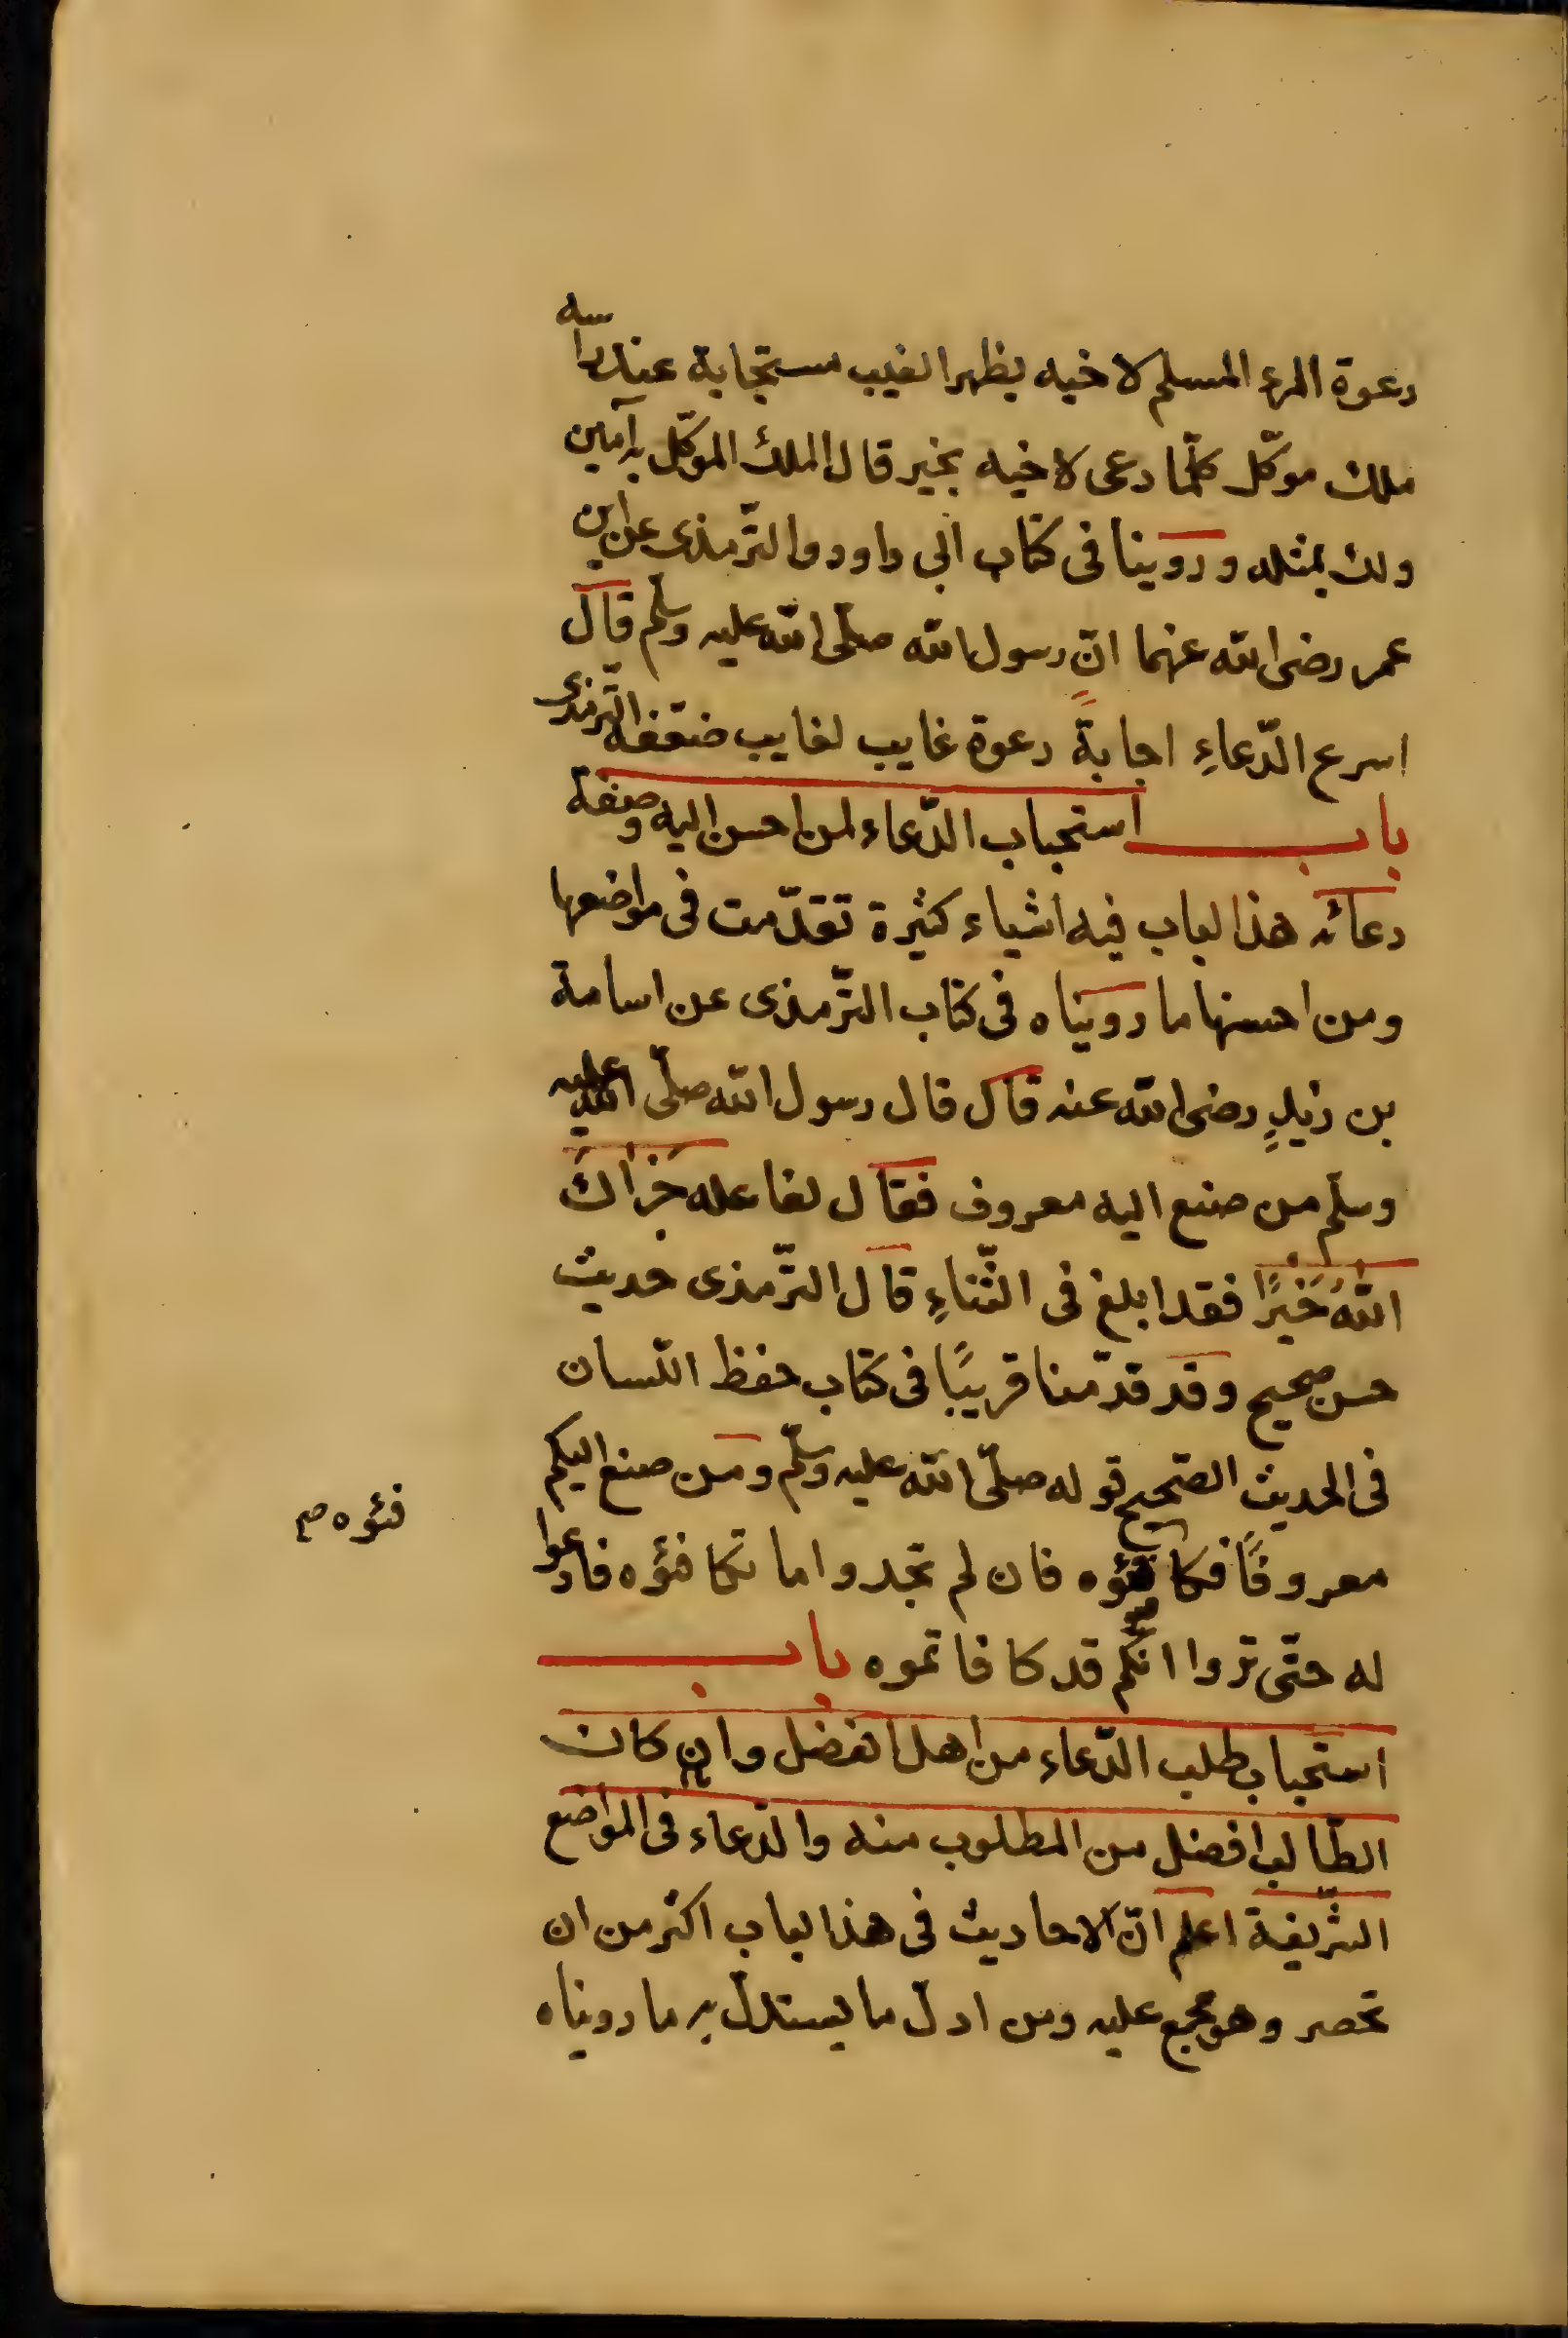 دعوة المرء المسلم لاخيه بظهر الغيب مستجابة عند راسه
ملك موكّل كلّما دعى لاخيه بخير قال الملك الموكّل به آمين
ولك بمثله وروينا فى كتاب ابى داود والترّمذى عن ابن
عمر رضى الله عنهما انّ رسول الله صلّى الله عليه وسلّم قال
اسرع الدّعاءِ اجابةً دعوة غايب لغايب ضعّفه الترّمذى
باب استحباب الدّعاء لمن احسن اليه وصفة
دعائه هذا لباب فيه اشياء كثيرة تقدّمت فى مواضعها
ومن احسنها ما رويناه فى كتاب الترّمذى عن اسامة
بن زيدٍ رضى الله عنه قال قال رسول الله صلّى الله عليه
وسلّم من صنع اليه معروف فقال لفاعله جَزَاكَ
اللهُ خَيرًا فقد ابلغ فى الثّناءِ قال الترّمذى حديث
حسن صحيح وقد قدّمنا قريبًا فى كتاب حفظ اللّسان
فى الحديث الصّحيح قوله صلّى الله عليه وسلّم ومن صنع اليكم
معروفًا فكافئوه فان لم تجدوا ما تكافئوه فادعوا
فئوه صح
له حتّى تروا انّكم قد كافاتموه باب
استحباب طلب الدّعاء من اهل الفضل وان كان
الطّالب افضل من المطلوب منه والدّعاء فى المواضع
الشّريفة اعلم انّ الاحاديث فى هذا لباب اكثر من ان
تحصر وهو مجمع عليه ومن ادلّ ما يستدلّ به ما رويناه